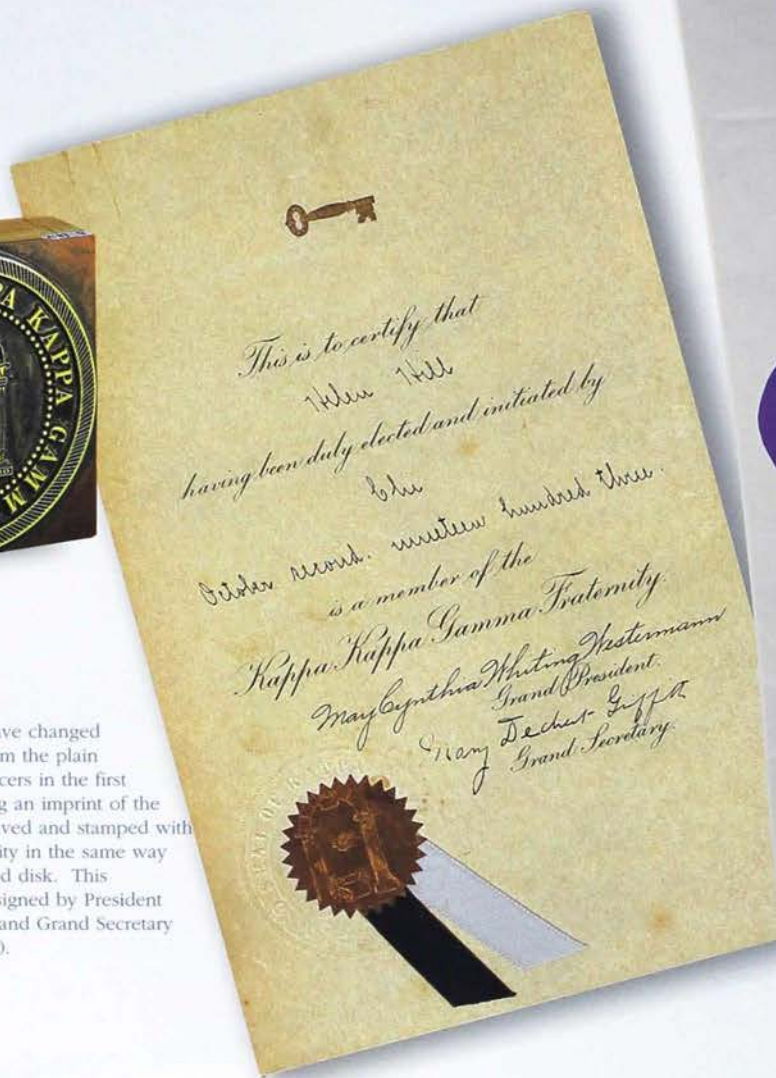 PA KAPPA GAMM
This is to certify that
Helen Hill
having been duly elected and initiated by
Chi
October second. nineteen hundred three.
is a member of the
Kappa Kappa Gamma Fraternity.
May Cynthia Whiting Westermann
Grand President.
Mary Dechert Griffith
Grand Secretary.
SEAL OF K
ve changed
m the plain
cers in the first
g an imprint of the
ved and stamped with
ity in the same way
d disk. This
signed by President
and Grand Secretary
).